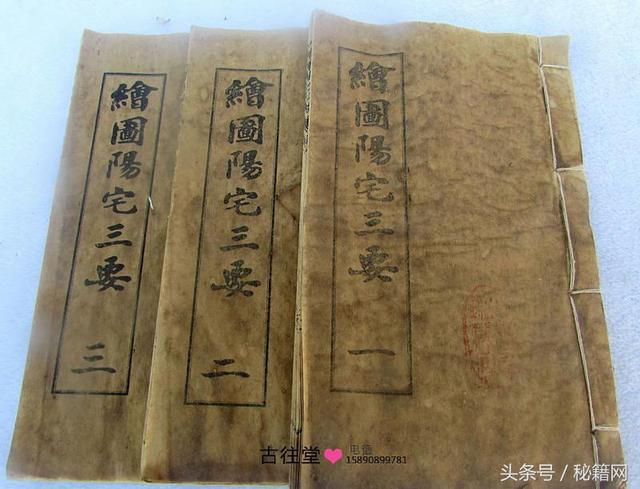 繪圖陽宅三要 一
繪圖陽宅三要 二
繪圖陽宅三要 三
古往堂❤电信
15890899781
头条号／秘籍网